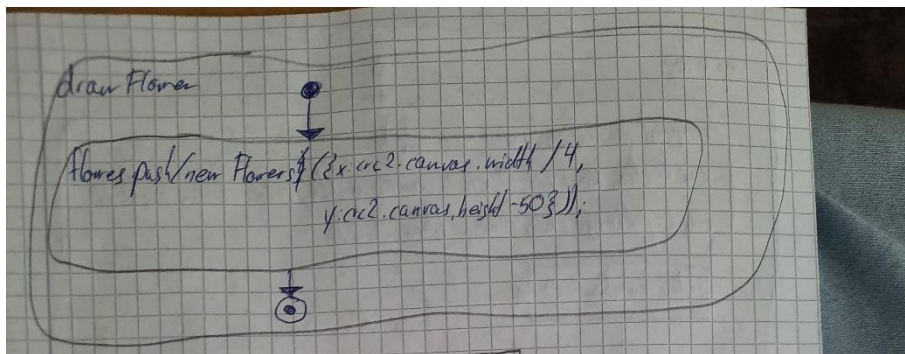 draw Flower
flowes.push(new Flowers({x:crc2.canvas.width /4,
y:crc2.canvas.height -50}));